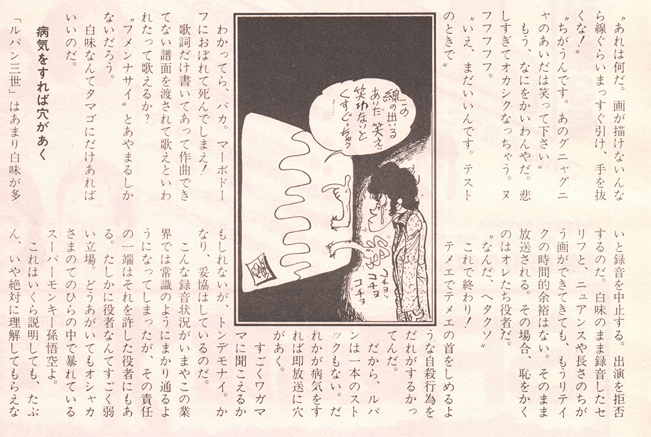 〝あれは何だ。画が描けないんな
ら線ぐらいまっすぐ引け、手を抜
くな！〟
〝ちがうんです。あのグニャグニ
ャのあいだは笑って下さい〟
もう、なにをかいわんやだ。悲
しすぎてオカシクなっちゃう。ヌ
フフフフフ。
〝いえ、まだいいんです。テスト
のときで〟
この
線の出いる
あいだ 笑え
笑わないと
くすぐっちゃう
コチョ
コチョ
コチョ
わかってら、バカ。マーボドー
フにおぼれて死んでしまえ！
歌詞だけ書いてあって作曲でき
てない譜面を渡されて歌えといわ
れたって歌えるか？
〝フメンナサイ〟とあやまるしか
ないだろう。
白味なんてタマゴにだけあれば
いいのだ。
病気をすれば穴があく
「ルパン三世」はあまり白味が多
いと録音を中止する。出演を拒否
するのだ。白味のまま録音したセ
リフと、ニュアンスや長さのちが
う画ができてきても、もうリテイ
クの時間的余裕はない。そのまま
放送される。その場合、恥をかく
のはオレたち役者だ。
〝なんだ、ヘタクソ〟
これで終わり！
テメエでテメエの首をしめるよ
うな自殺行為を
だれがするかっ
てんだ。
だから、ルパ
ンは一本のスト
ックもない。だ
れかが病気をす
れば即放送に穴
があく。
すごくワガマ
マに聞こえるか
もしれないが、トンデモナイ。か
なり、妥協はしているのだ。
こんな録音状況がいまやこの業
界では常識のようにまかり通るよ
うになってしまったが、その責任
の一端はそれを許した役者にもあ
る。たしかに役者なんてすごく弱
い立場。どうあがいてもオシャカ
さまのてのひらの中で暴れている
スーパーモンキー孫悟空よ。
これはいくら説明しても、たぶ
ん、いや絶対に理解してもらえな